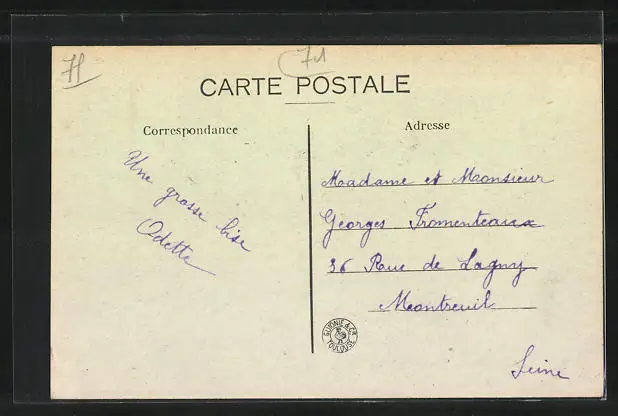 71
CARTE POSTALE
Correspondance
Une grosse bise
Odette
Adresse
Madame et Monsieur
Georges Fromenteaux
36 Rue de Lagny
Montreuil
Seine
TOULOUSE